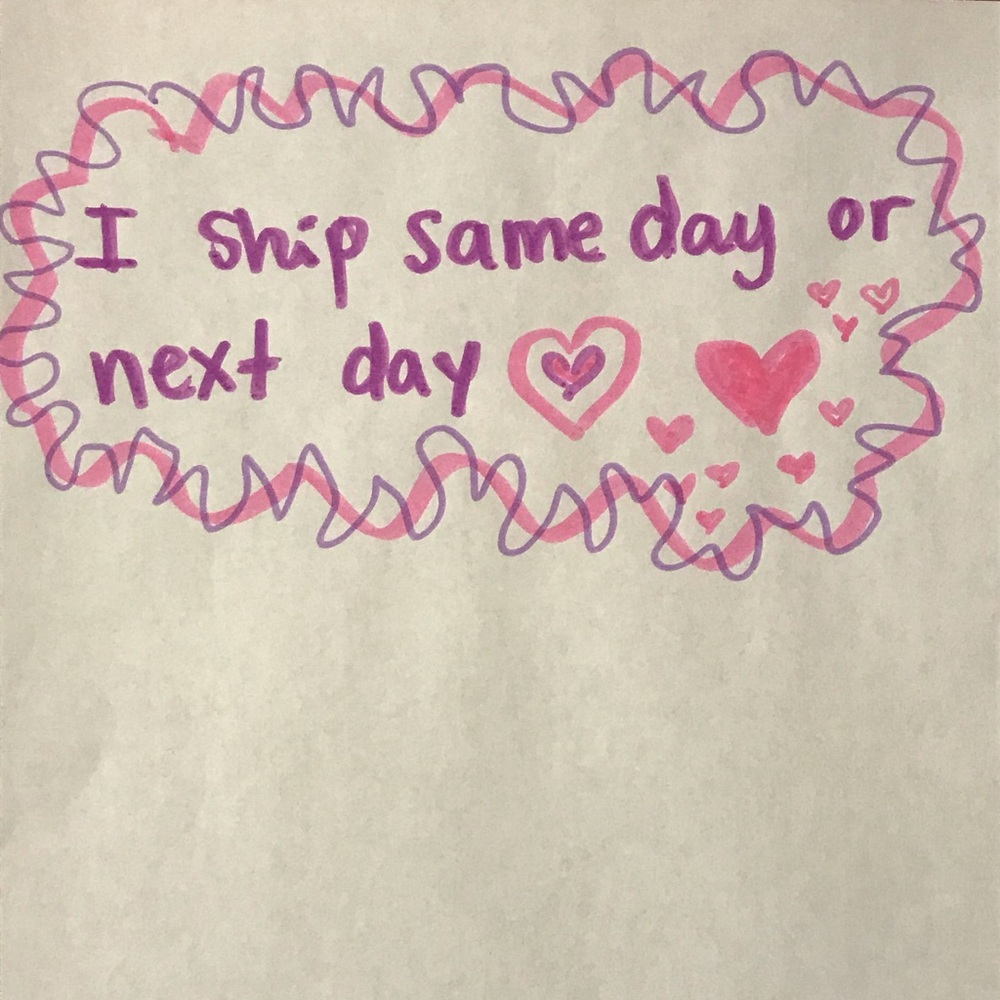 I ship same day or
next day